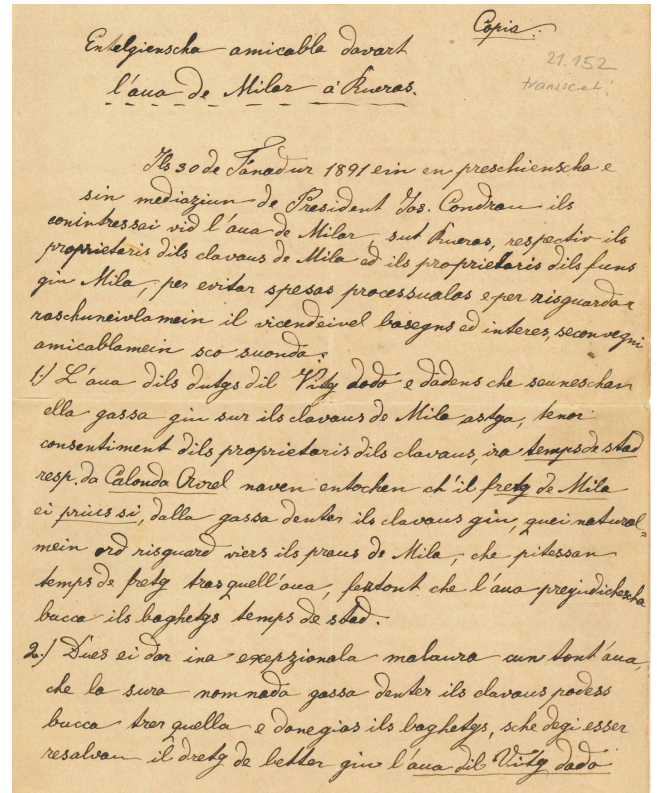 Copia.
Entelgienscha amicabla davart
21.152
l'aua de Milar à Rueras.
Ils 30 de Fanadur 1891 ein en preschienscha e
sin mediaziun de President Jos. Condrau ils
conintressai vid l'aua de Milar, sut Rueras, respectiv ils
proprietaris dils clavaus de Mila ed ils proprietaris dils funs
giu Mila, per evitar spesas processualas e per risguardar
raschuneivlamein il vicendeivel basegns ed interes, seconvegni
amicablamein sco suonda:
1.) L'aua dils dutgs dil Vitg dado e dadens che seuneschan
ella gassa giu sur ils clavaus de Mila astga, tenor
consentiment dils proprietaris dils clavaus, ira temps de stad
resp. da Calonda Avrel naven entochen ch'il fretg de Mila
ei prius si, dalla gassa denter ils clavaus giu, quei natural=
mein ord risguard viers ils praus de Mila, che pitessan
temps de fretg tras quell'aua, fertont che l'aua prejudichescha
bucca ils baghetgs temps de stad.
2.) Dues ei dar ina exepzionala malaura cun tont'aua,
che la sura nomnada gassa denter ils clavaus podess
bucca trer quella e donegias ils baghetgs, sche degi esser
resalvau il dretg de better giu l'aua dil Vitg dado